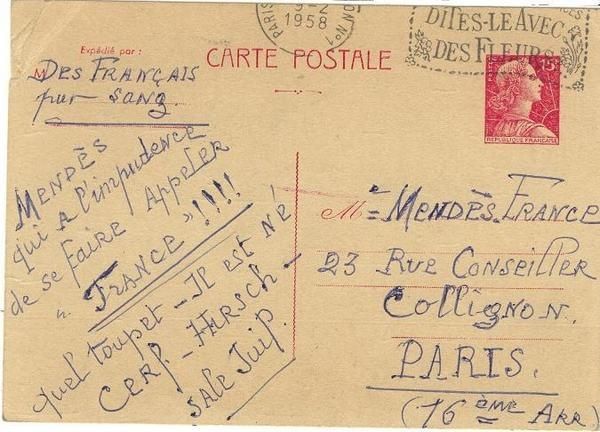 PARIS
9-2
1958
DITES-LE AVEC
DES FLEURS
Expédié par :
CARTE POSTALE
M DES FRANÇAIS
pur sang.
15F
REPUBLIQUE FRANÇAISE
MENDÈS
qui a l'impudence
de se faire appeler
" FRANCE "!!!!
quel toupet - Il est né
CERF - HIRSCH -
sale Juif.
Me = MENDÈS-FRANCE
23 RUE CONSEILLER
COLLIGNON.
PARIS.
(16ÈME ARR)